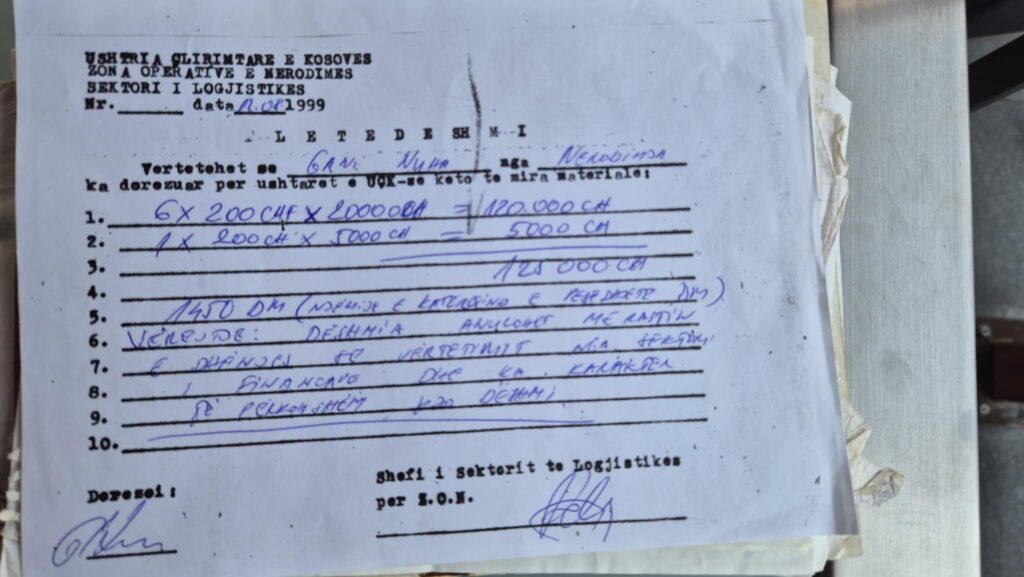 USHTRIA CLIRIMTARE E KOSOVES
ZONA OPERATIVE E NERODIMES
SEKTORI I LOGJISTIKES
Nr. data 1999
L E T E D E SH M I
Vertetehet se GANI NUHA nga NERODIMJA
ka dorezuar per ushtaret e UÇK-se keto te mira materiale:
1. 6 X 200 CHF X 20000 = 120.000
2. 1 X 200 X 5000 = 5000
3. 125 000
4.
5. 1450 DM (NJËMIJE E KATERQIND E PESEDHJETE DM)
6. VËREJTJE: DESHMIA ANULOHET ME RASTIN
7. E DHËNJES SË VËRTETIMIT NGA SEKTORI
8. I FINANCAVE DHE KA KARAKTER
9. TË PËRKOHSHËM KJO DËSHMI
10.
Dorezoi:
Shefi i Sektorit te Logjistikes
per Z.O.N.